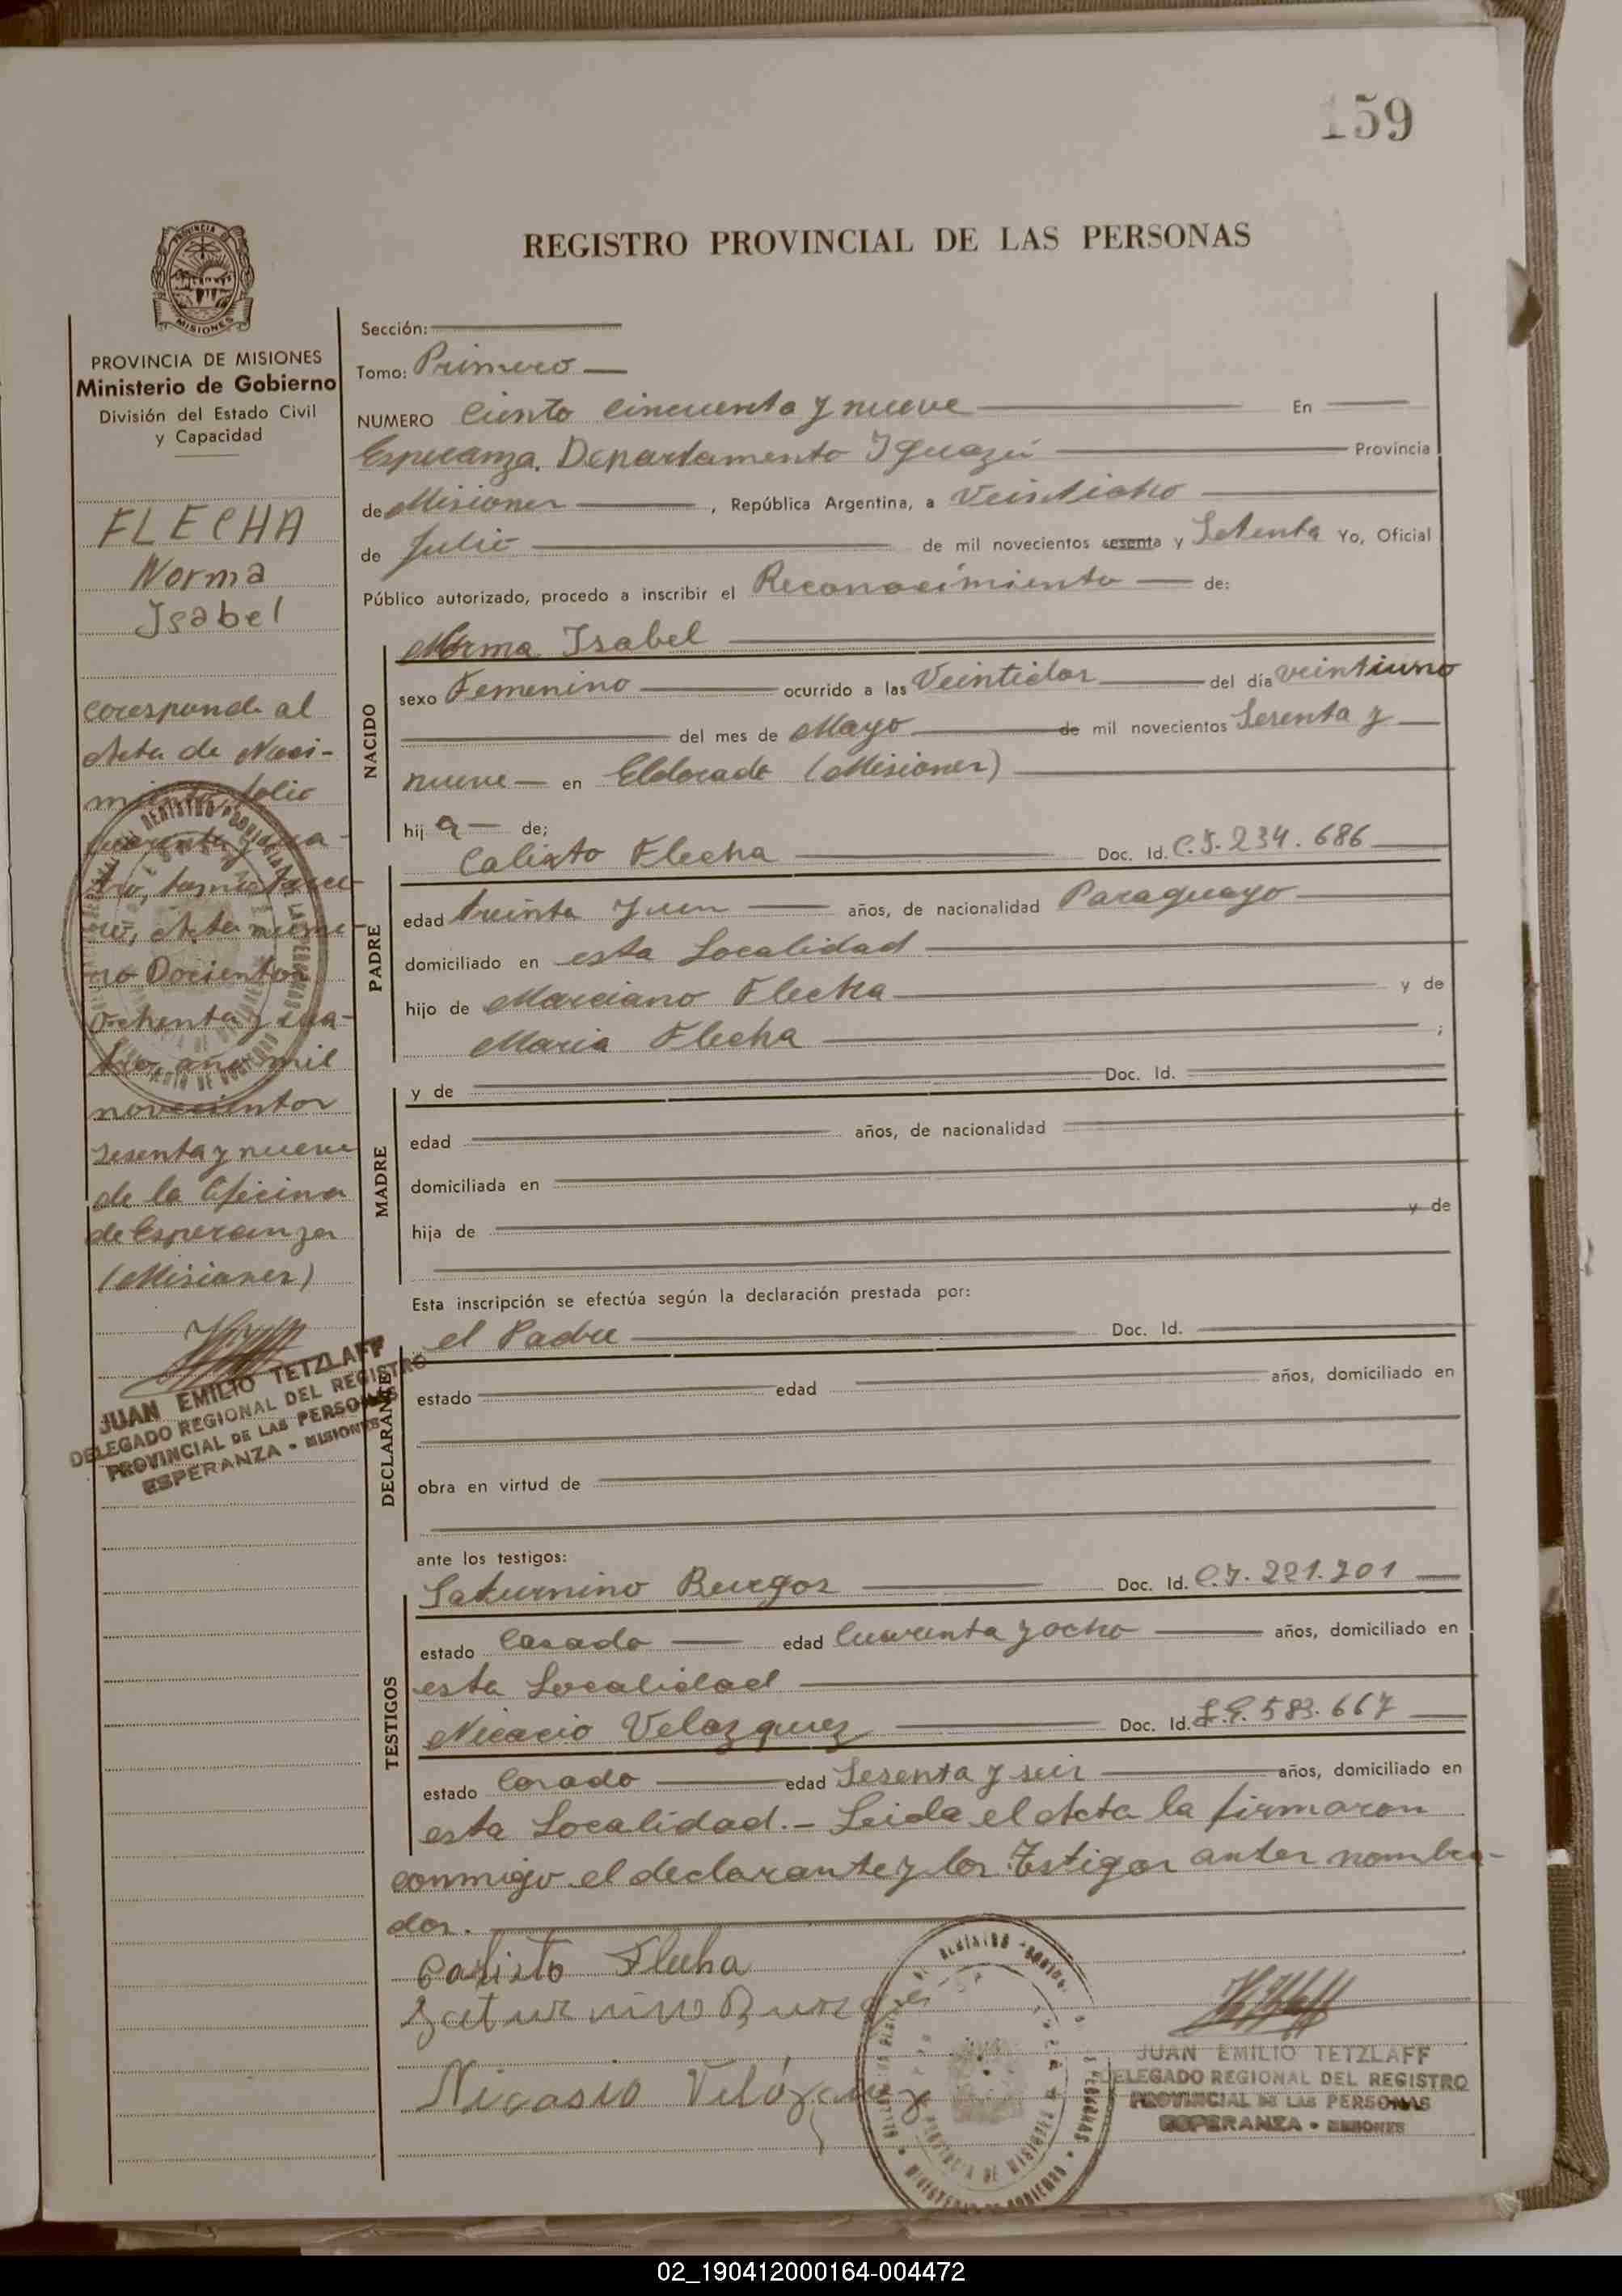 159
REGISTRO PROVINCIAL DE LAS PERSONAS
PROVINCIA DE
MISIONES
PROVINCIA DE MISIONES
Ministerio de Gobierno
División del Estado Civil
y Capacidad
FLECHA
Norma
Isabel
corresponde al
Acta de Naci-
miento, folio
cuarenta y cua-
tro, tomo
Acta nume-
ro Docientos
Ochenta y cua-
tro, año mil
novecientos
sesenta y nueve
de la Oficina
de Esperanza
(Misiones)
JUAN EMILIO TETZLAFF
DELEGADO REGIONAL DEL REGISTRO
PROVINCIAL DE LAS PERSONAS
ESPERANZA - MISIONES
Sección:
Tomo: Primero
NUMERO Ciento Cincuenta y nueve En
Esperanza. Departamento Iguazú Provincia
de Misiones , República Argentina, a Veintiocho
de Julio de mil novecientos sesenta y Setenta Yo, Oficial
Público autorizado, procedo a inscribir el Reconocimiento de:
NACIDO
Norma Isabel
sexo Femenino ocurrido a las Veintidos del día veintiuno
del mes de Mayo de mil novecientos Sesenta y
nueve en Eldorado (Misiones)
hij a de;
PADRE
Calixto Flecha Doc. Id. C.I. 234.686
edad treinta y un años, de nacionalidad Paraguayo
domiciliado en esta Localidad
hijo de Marciano Flecha y de
Maria Flecha ;
MADRE
y de Doc. Id.
edad años, de nacionalidad
domiciliada en
hija de y de
Esta inscripción se efectúa según la declaración prestada por:
DECLARANTE
el Padre Doc. Id.
estado edad años, domiciliado en
obra en virtud de
ante los testigos:
TESTIGOS
Saturnino Burgos Doc. Id. C.I. 221.201
estado Casado edad Cuarenta y ocho años, domiciliado en
esta Localidad
Nicacio Velazquez Doc. Id. 583.667
estado Casado edad Sesenta y seis años, domiciliado en
esta Localidad.- Leida el Acta la firmaron
conmigo el declarante y los Testigos antes nombra-
dos.
Calixto Flecha
Saturnino Burgos
Nicasio Velázquez
JUAN EMILIO TETZLAFF
DELEGADO REGIONAL DEL REGISTRO
PROVINCIAL DE LAS PERSONAS
ESPERANZA - MISIONES
02_190412000164-004472